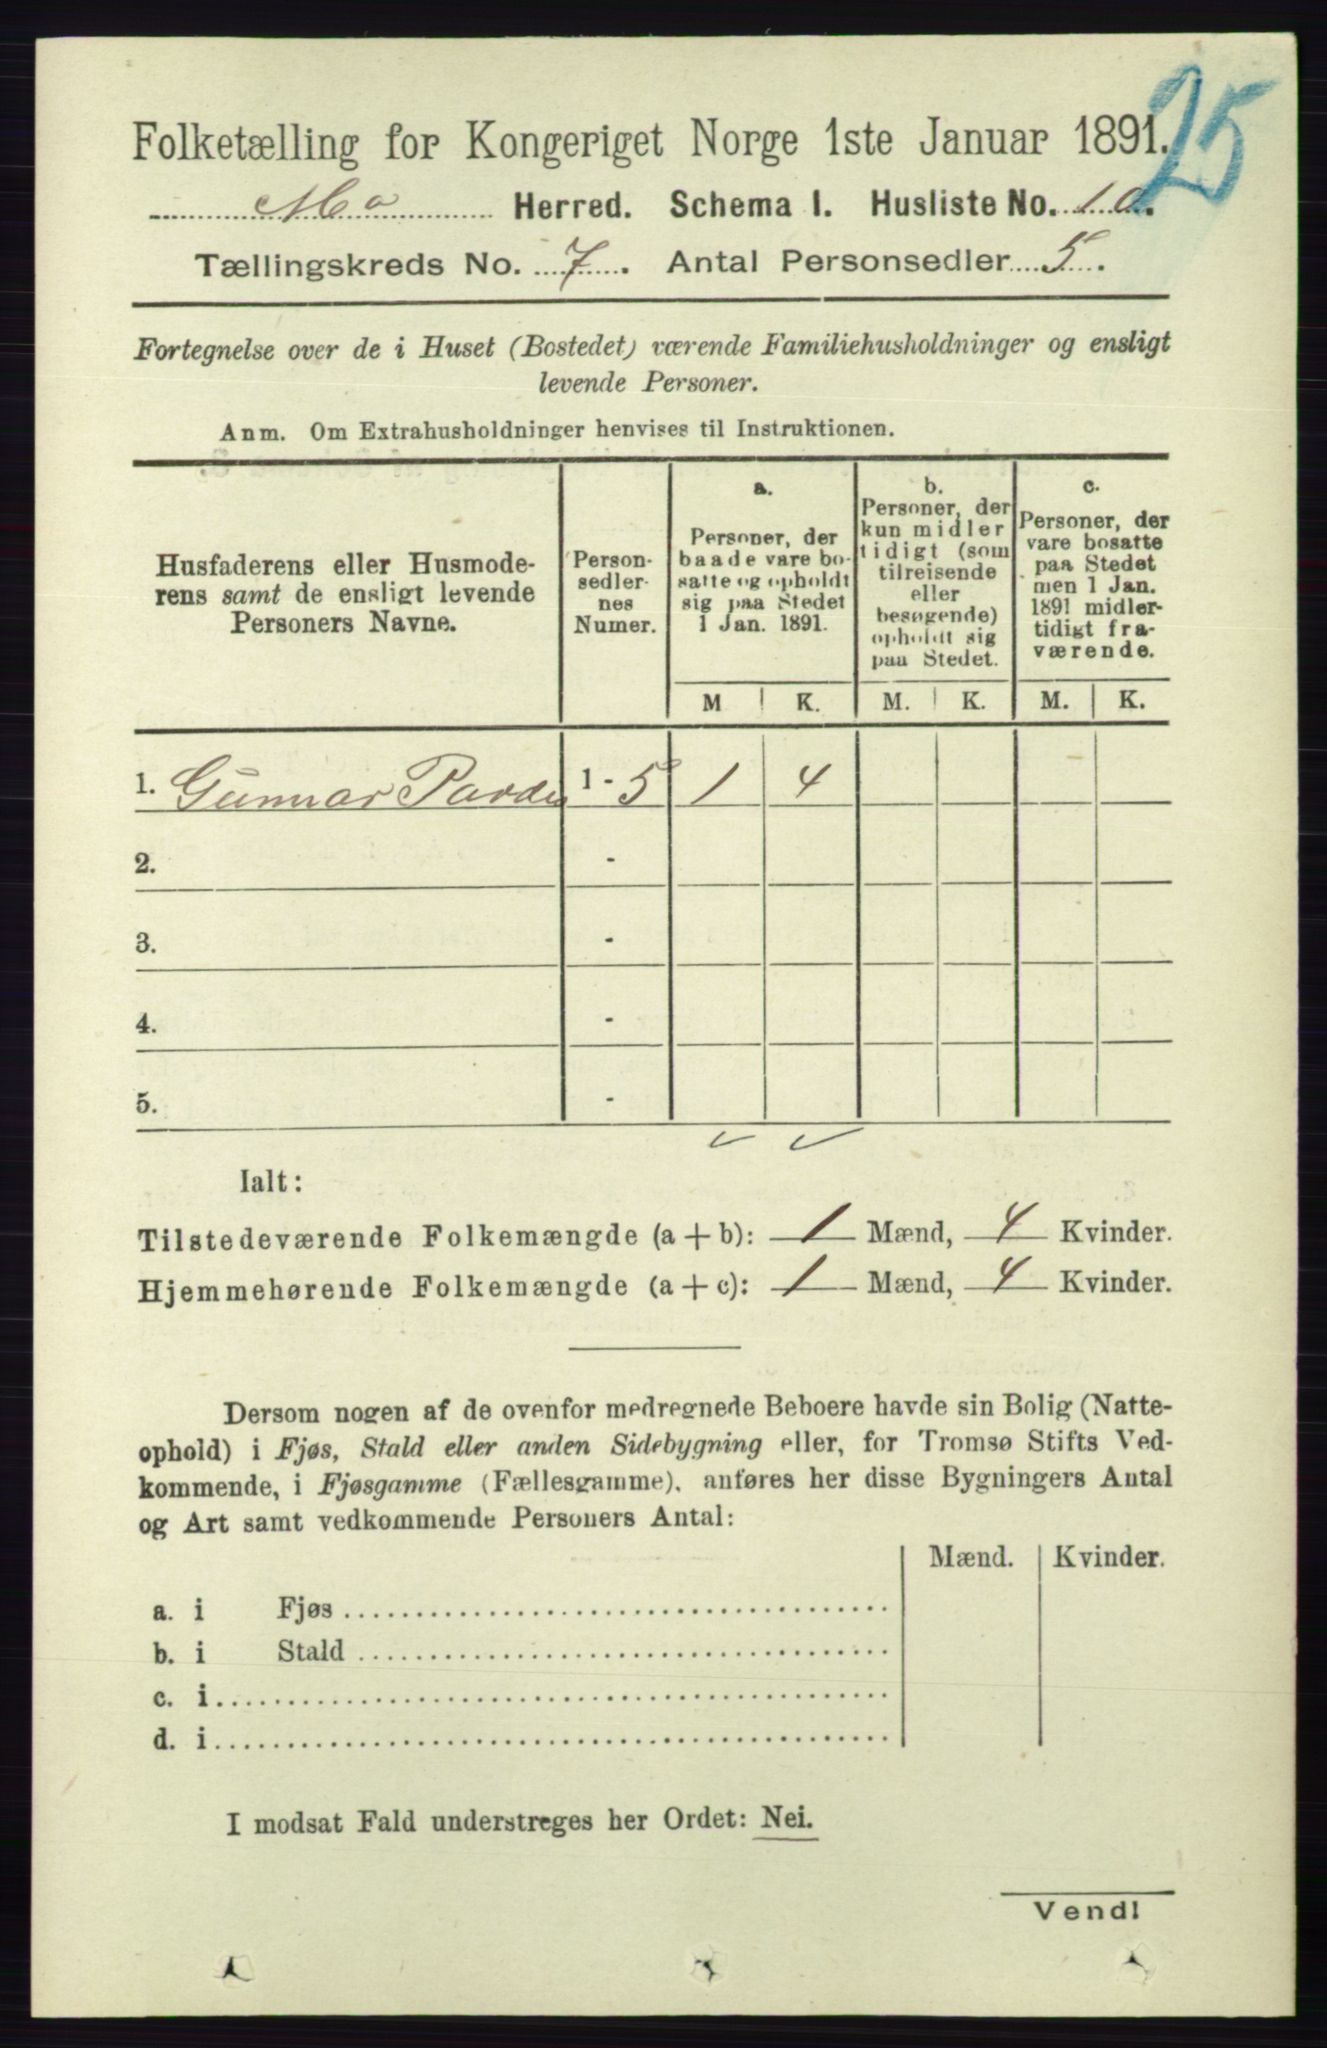 25
Folketælling for Kongeriget Norge 1ste Januar 1891.
Mo Herred. Schema I. Husliste No. 10.
Tællingskreds No. 7. Antal Personsedler 5.
Fortegnelse over de i Huset (Bostedet) værende Familiehusholdninger og ensligt
levende Personer.
Anm. Om Extrahusholdninger henvises til Instruktionen.
Husfaderens eller Husmode-
rens samt de ensligt levende
Personers Navne.
Person-
sedler-
nes
Numer.
a.
Personer, der
baade vare bo-
satte og opholdt
sig paa Stedet
1 Jan. 1891.
b.
Personer, der
kun midler
tidigt (som
tilreisende
eller
besøgende)
opholdt sig
paa Stedet.
c.
Personer, der
vare bosatte
paa Stedet
men 1 Jan.
1891 midler-
tidigt fra-
værende.
M K. M. K. M. K.
1. Gunnar 1 - 5 1 4
2. -
3. -
4. -
5. -
Ialt:
Tilstedeværende Folkemængde (a + b): 1 Mænd, 4 Kvinder.
Hjemmehørende Folkemængde (a + c): 1 Mænd, 4 Kvinder.
Dersom nogen af de ovenfor medregnede Beboere havde sin Bolig (Natte-
ophold) i Fjøs, Stald eller anden Sidebygning eller, for Tromsø Stifts Ved-
kommende, i Fjøsgamme (Fællesgamme), anføres her disse Bygningers Antal
og Art samt vedkommende Personers Antal:
Mænd. Kvinder.
a. i Fjøs
b. i Stald
c. i
d. i
I modsat Fald understreges her Ordet: Nei.
Vend!